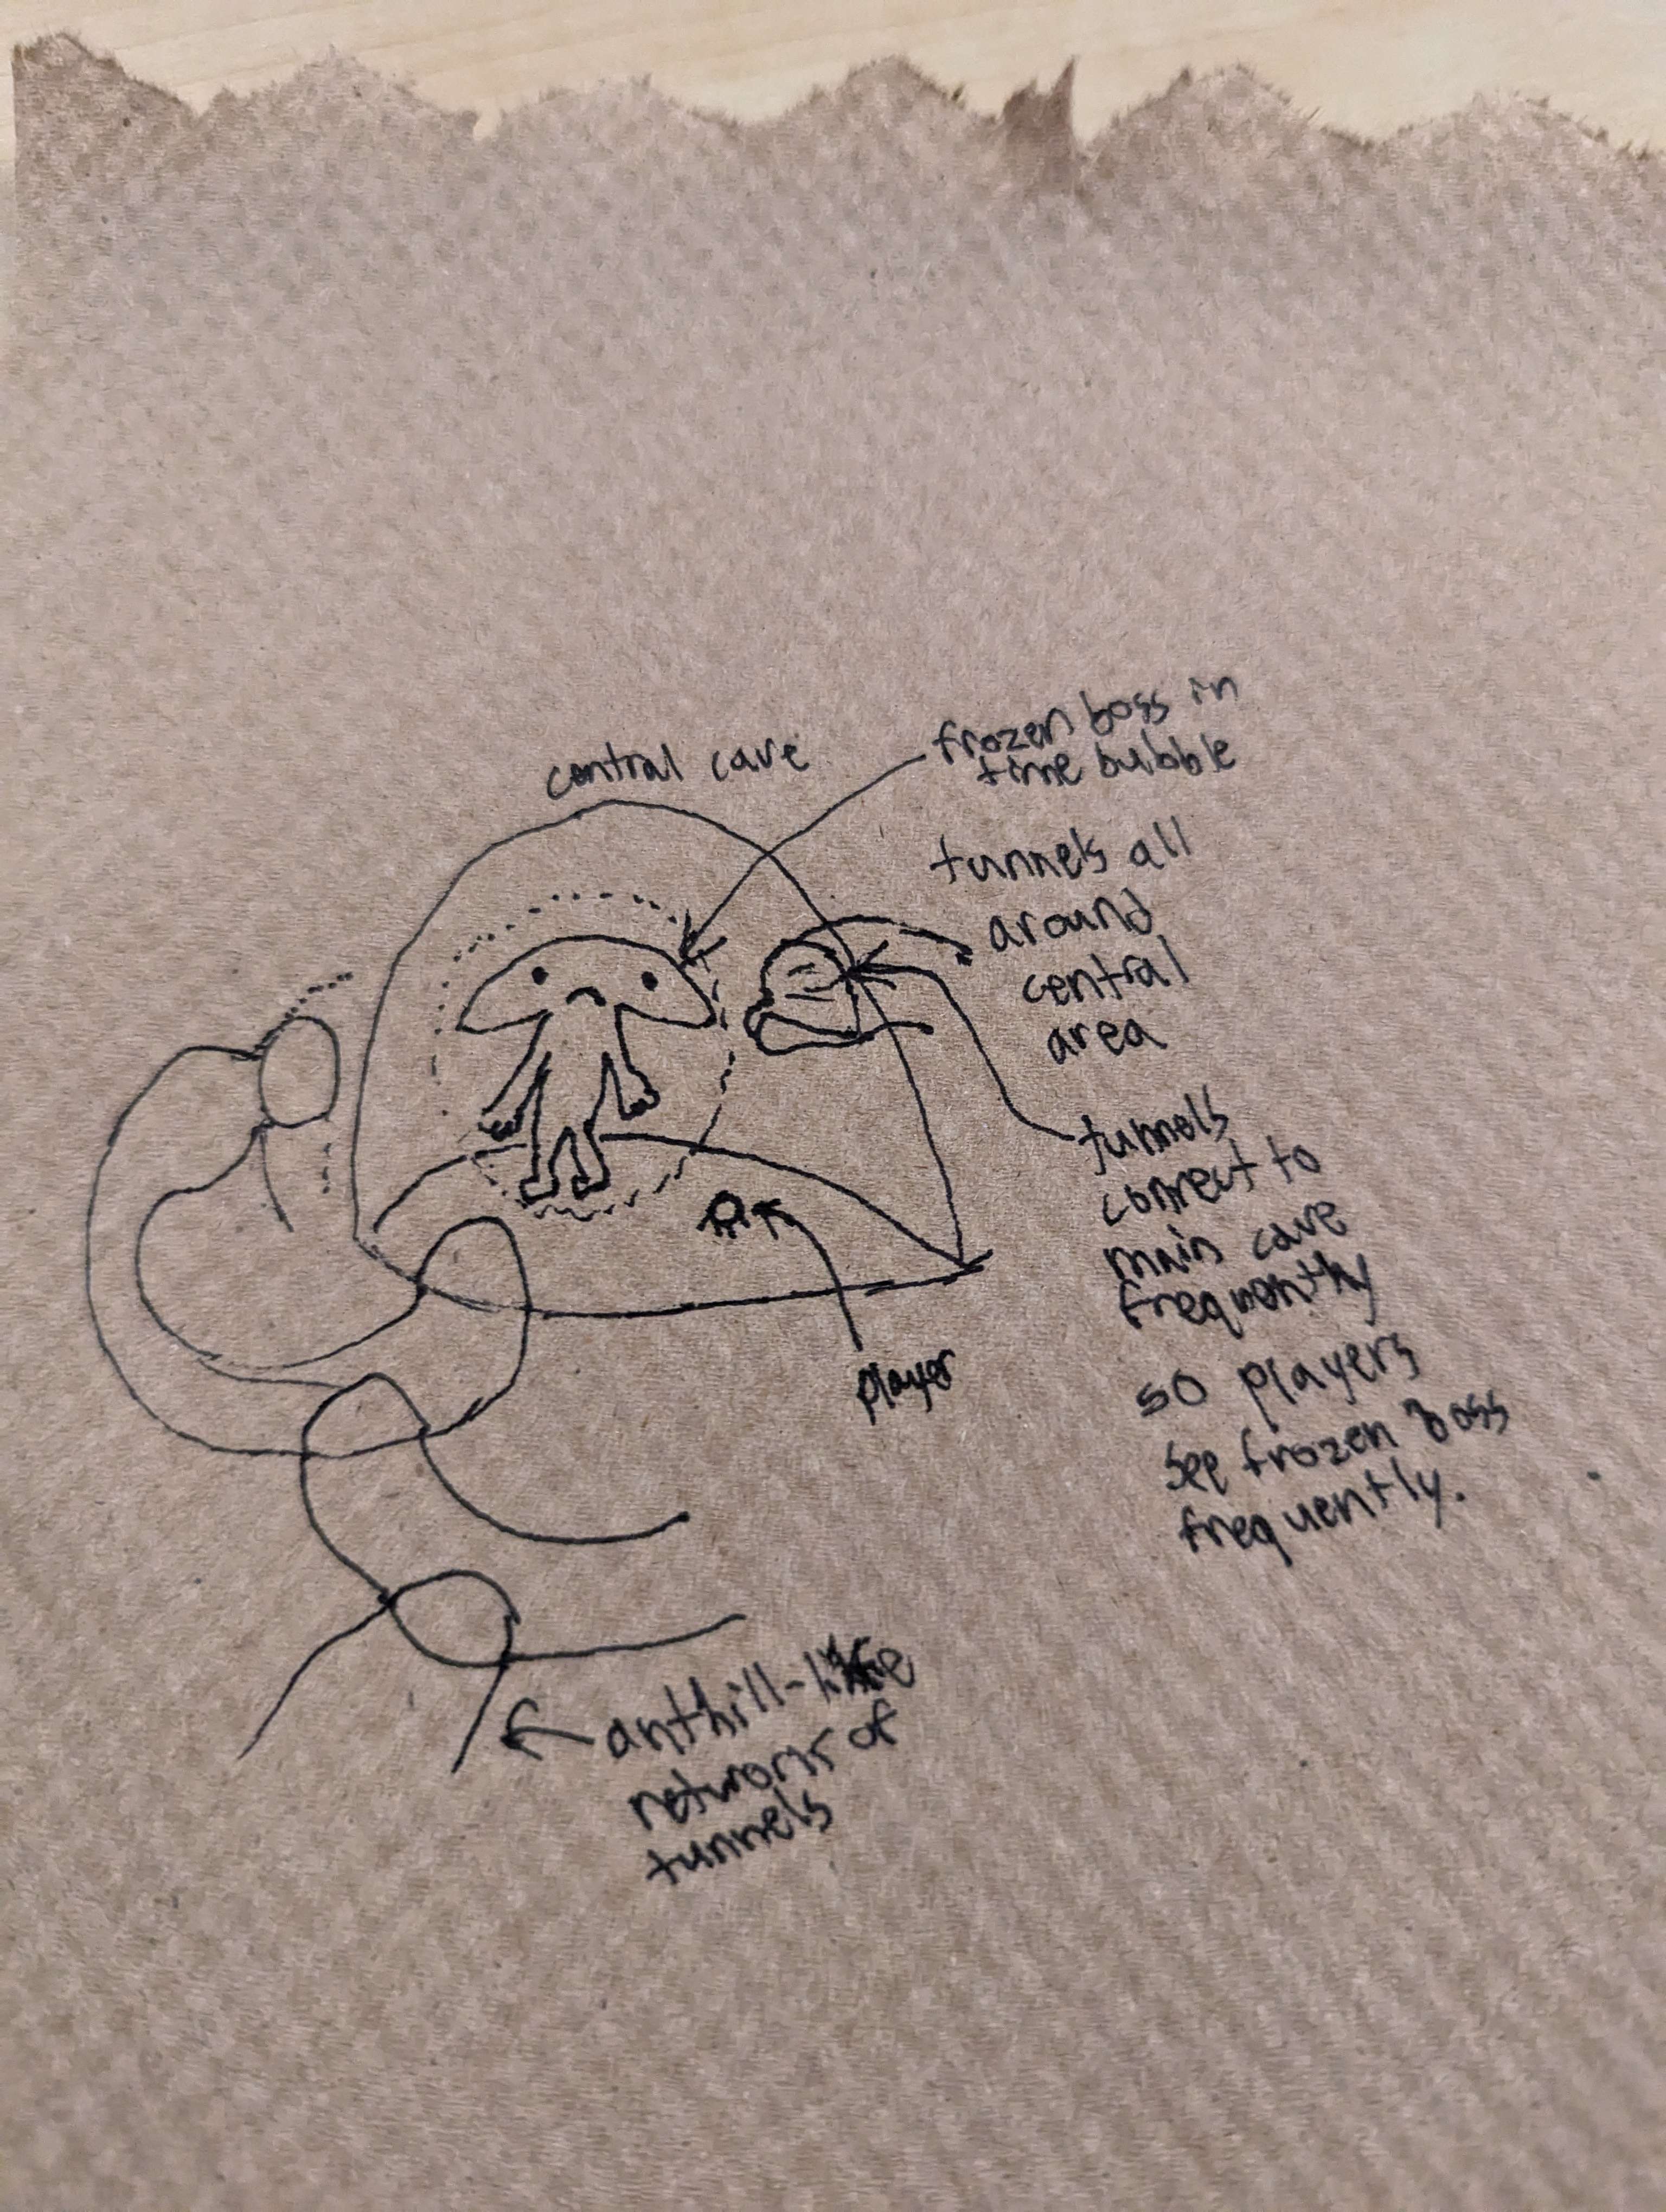 central cave
frozen boss in
time bubble
tunnels all
around
central
area
tunnels
connect to
main cave
frequently
so players
see frozen boss
frequently.
player
anthill-like
network of
tunnels